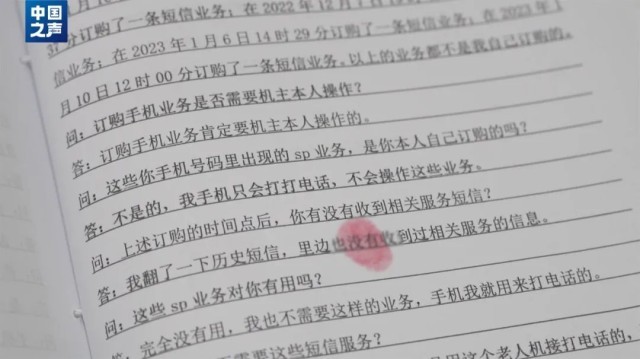 中国之声
分订购了一条短信业务；在 2022 年 12 月 7 日
信业务；在 2023 年 1 月 6 日 14 时 29 分订购了一条短信业务；在 2023 年 1
月 10 日 12 时 00 分订购了一条短信业务。以上的业务都不是我自己订购的。
问：订购手机业务是否需要机主本人操作？
答：订购手机业务肯定要机主本人操作的。
问：这些你手机号码里出现的 sp 业务，是你本人自己订购的吗？
答：不是的，我手机只会打打电话，不会操作这些业务。
问：上述订购的时间点后，你有没有收到相关服务短信？
答：我翻了一下历史短信，里边也没有收到过相关服务的信息。
问：这些 sp 业务对你有用吗？
答：完全没有用，我也不需要这样的业务，手机我就用来打电话的。
需要这些短信服务？
用这个老人机接打电话的，